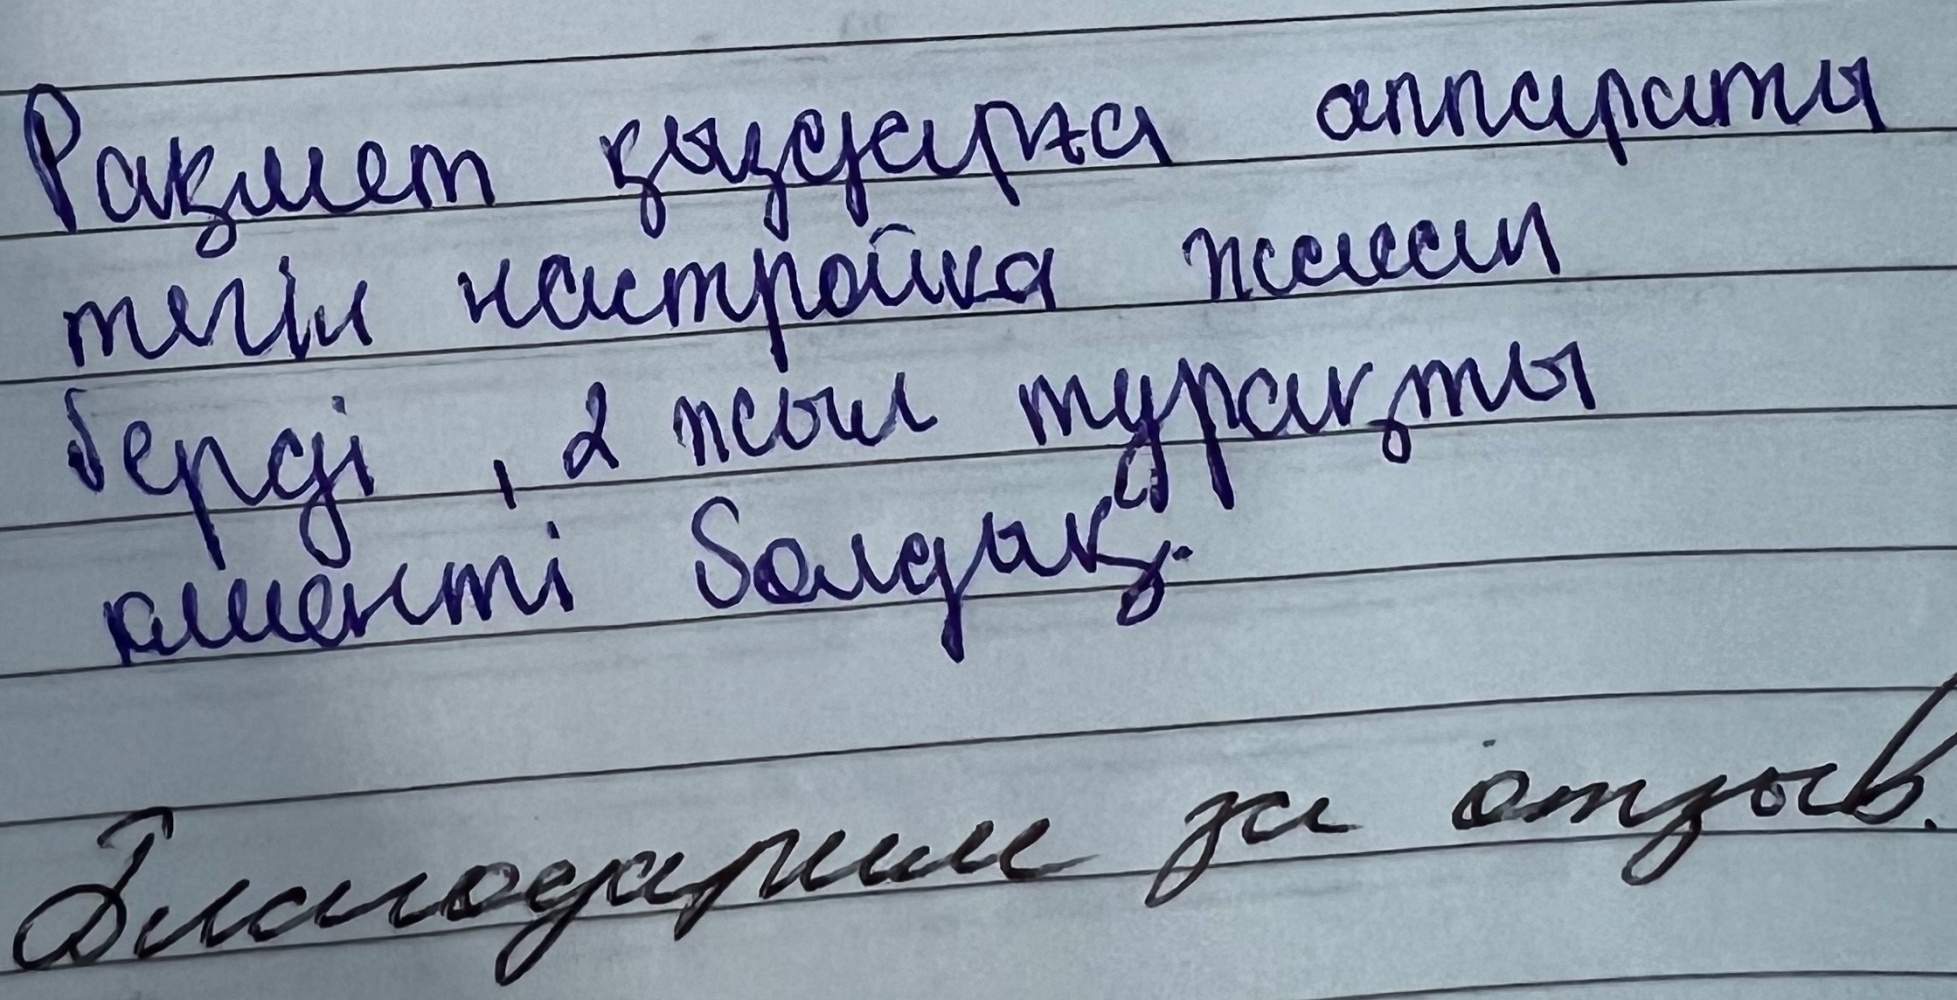 Рақмет қыздарға аппараты
тегін настройка жасап
берді, 2 жыл тұрақты
клиенті болдық.
Благодарим за отзыв.